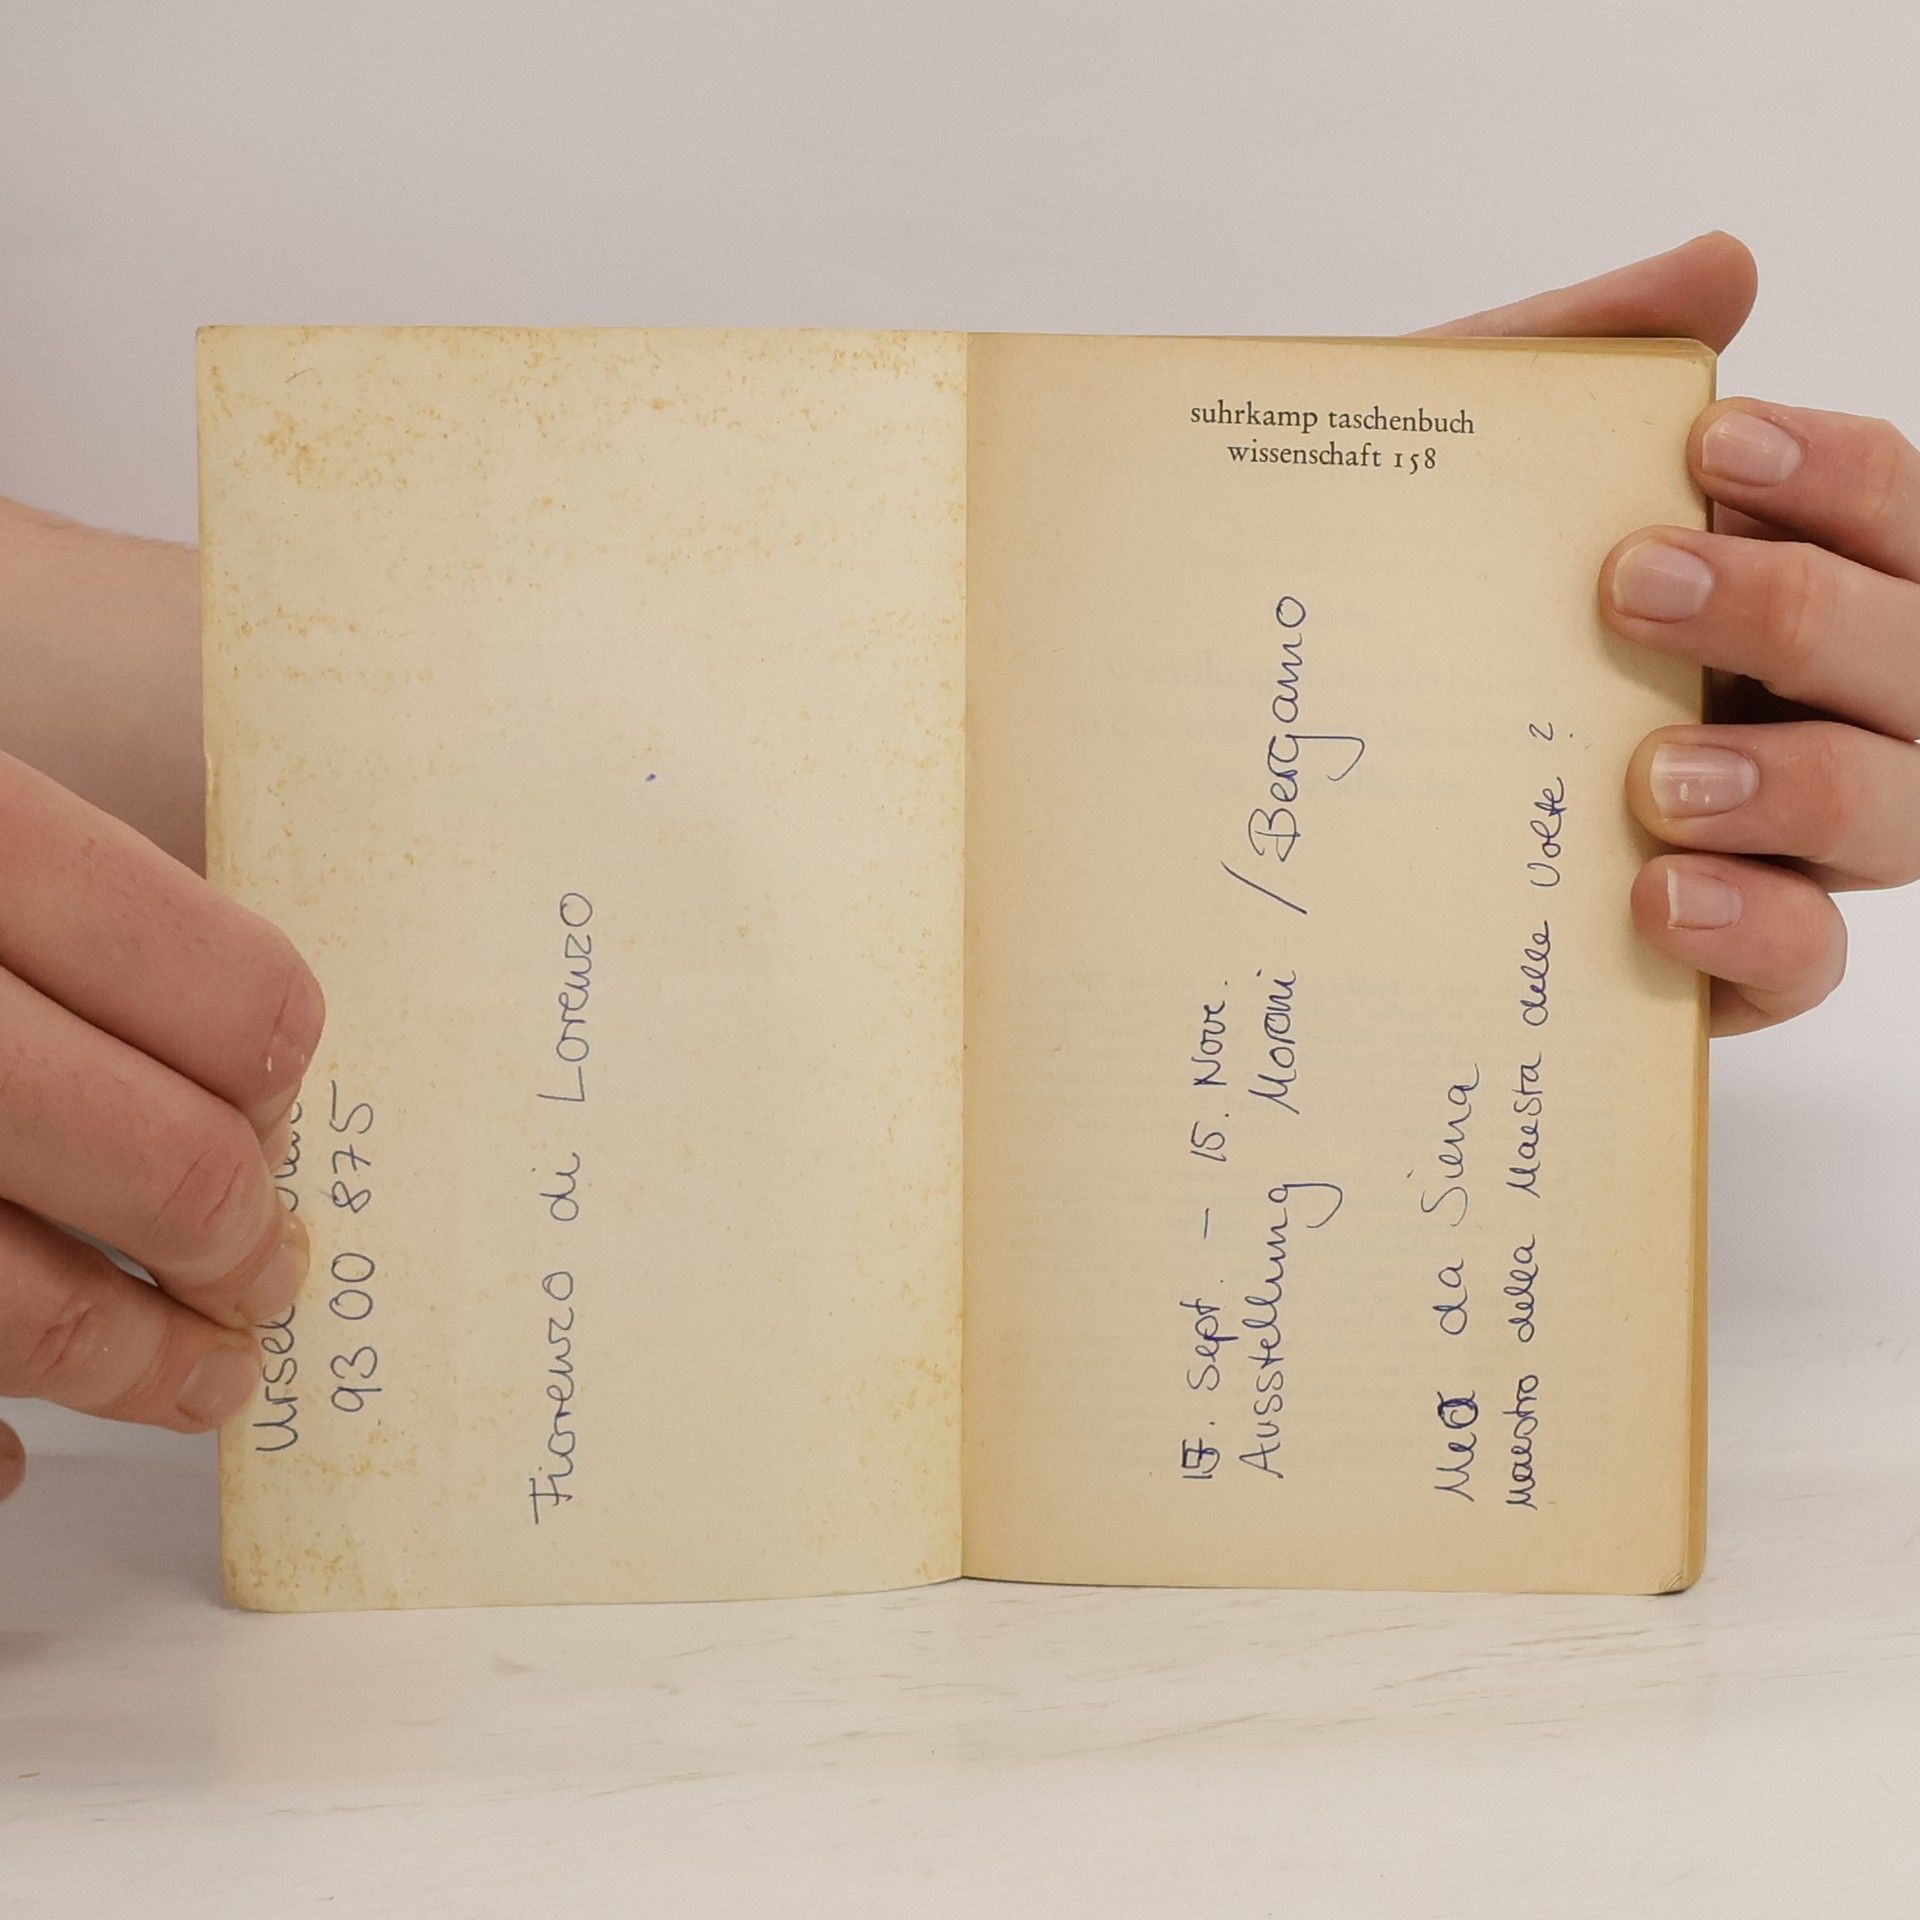 93 00 875
Fiorenzo di Lorenzo
suhrkamp taschenbuch
wissenschaft 158
Sept. – 15. Nov.
Ausstellung Moroni / Bergamo
Meo da Siena
Maestro della Maesta delle Volte ?